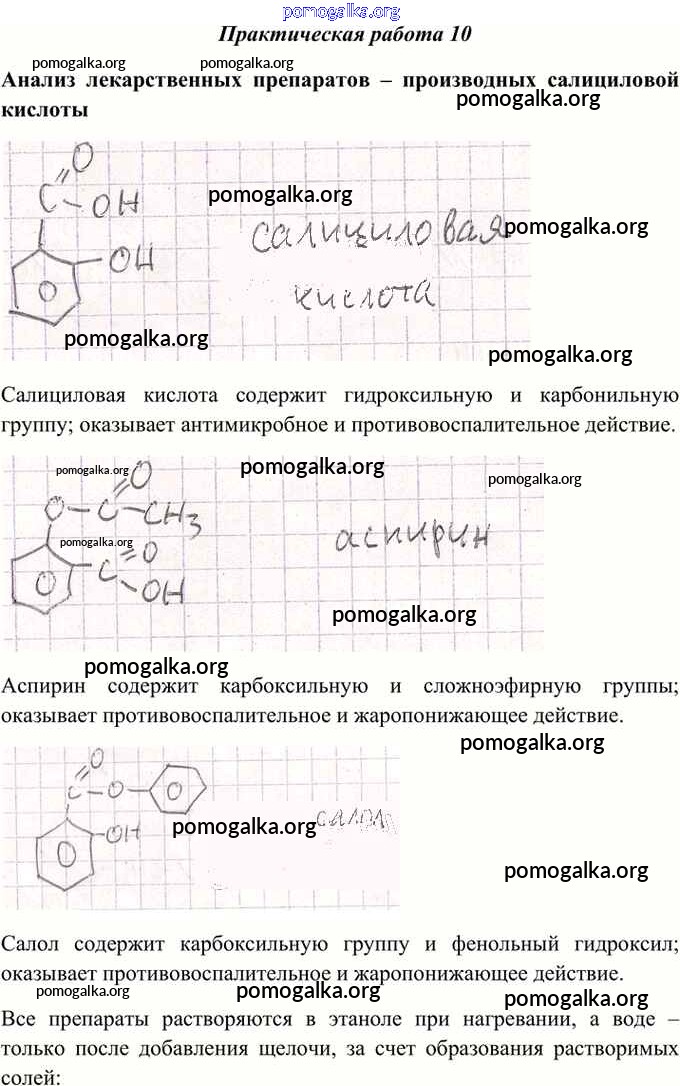 pomogalka.org
Практическая работа 10
pomogalka.org pomogalka.org
Анализ лекарственных препаратов – производных салициловой
pomogalka.org
кислоты
O
C – OH
pomogalka.org
OH
салициловая
pomogalka.org
O
кислота
pomogalka.org
pomogalka.org
Салициловая кислота содержит гидроксильную и карбонильную
группу; оказывает антимикробное и противовоспалительное действие.
pomogalka.org
O
pomogalka.org
pomogalka.org
O – C – CH3
pomogalka.org
O
аспирин
C
O
OH
pomogalka.org
pomogalka.org
Аспирин содержит карбоксильную и сложноэфирную группы;
оказывает противовоспалительное и жаропонижающее действие.
pomogalka.org
O
C – O –
O
салол
pomogalka.org
OH
O
pomogalka.org
Салол содержит карбоксильную группу и фенольный гидроксил;
оказывает противовоспалительное и жаропонижающее действие.
pomogalka.org pomogalka.org pomogalka.org
Все препараты растворяются в этаноле при нагревании, а воде –
только после добавления щелочи, за счет образования растворимых
солей: